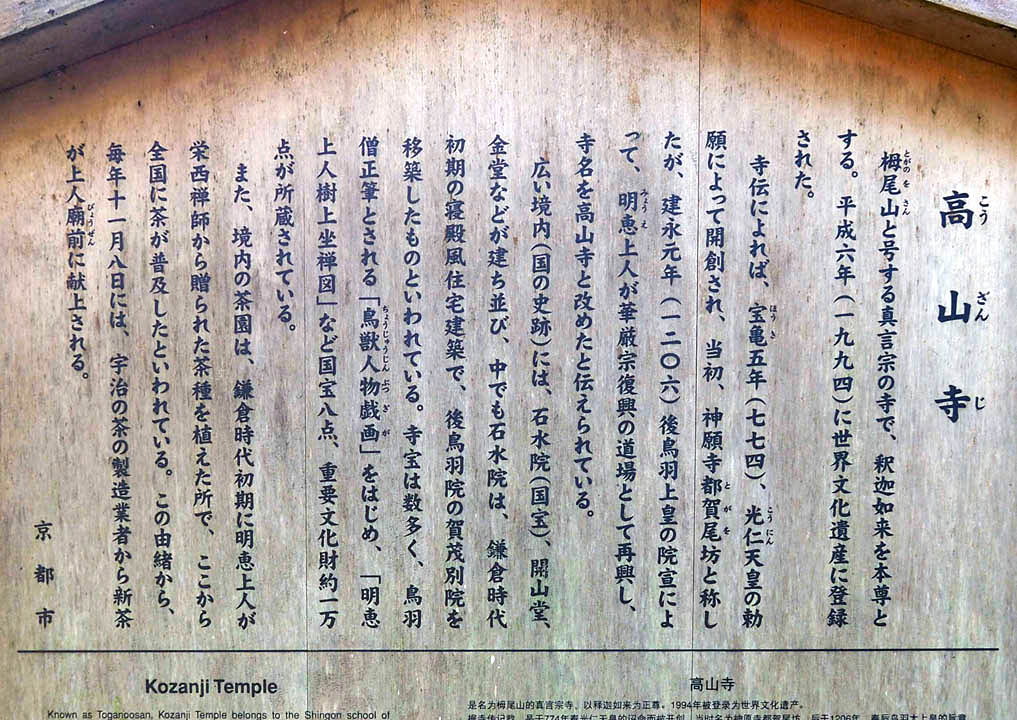 高山寺
栂尾山と号する真言宗の寺で、釈迦如来を本尊と
する。平成六年(一九九四)に世界文化遺産に登録
された。
寺伝によれば、宝亀五年(七七四)、光仁天皇の勅
願によって開創され、当初、神願寺都賀尾坊と称し
たが、建永元年(一二〇六)後鳥羽上皇の院宣によ
って、明恵上人が華厳宗復興の道場として再興し、
寺名を高山寺と改めたと伝えられている。
広い境内(国の史跡)には、石水院(国宝)、開山堂、
金堂などが建ち並び、中でも石水院は、鎌倉時代
初期の寝殿風住宅建築で、後鳥羽院の賀茂別院を
移築したものといわれている。寺宝は数多く、鳥羽
僧正筆とされる「鳥獣人物戯画」をはじめ、「明恵
上人樹上坐禅図」など国宝八点、重要文化財約一万
点が所蔵されている。
また、境内の茶園は、鎌倉時代初期に明恵上人が
栄西禅師から贈られた茶種を植えた所で、ここから
全国に茶が普及したといわれている。この由緒から、
毎年十一月八日には、宇治の茶の製造業者から新茶
が上人廟前に献上される。
京都市
Kozanji Temple
Known as Toganoosan, Kozanji Temple belongs to the Shingon school of
高山寺
是名为栂尾山的真言宗寺、以释迦如来为正尊。1994年被登录为世界文化遗产。